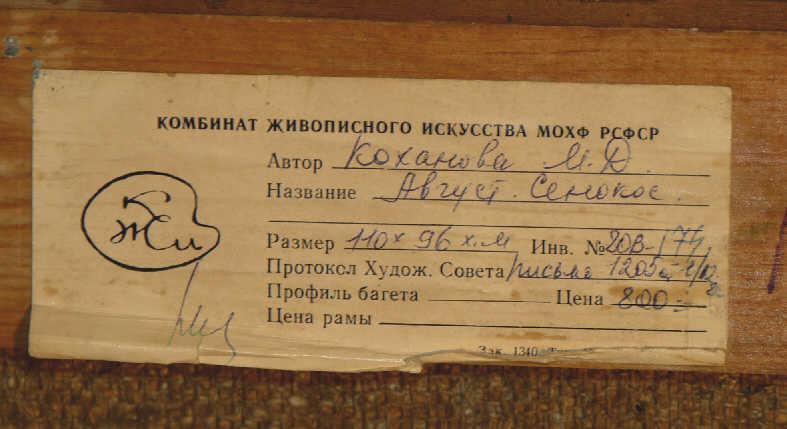 КОМБИНАТ ЖИВОПИСНОГО ИСКУССТВА МОХФ РСФСР
Автор Коханова М.Д.
Название Август. Сенокос.
КЖИ
Размер 110 х 96 х.м Инв. № 208-174
Протокол Худож. Совета письмо 1205
Профиль багета Цена 800=
Цена рамы
Зак. 1340